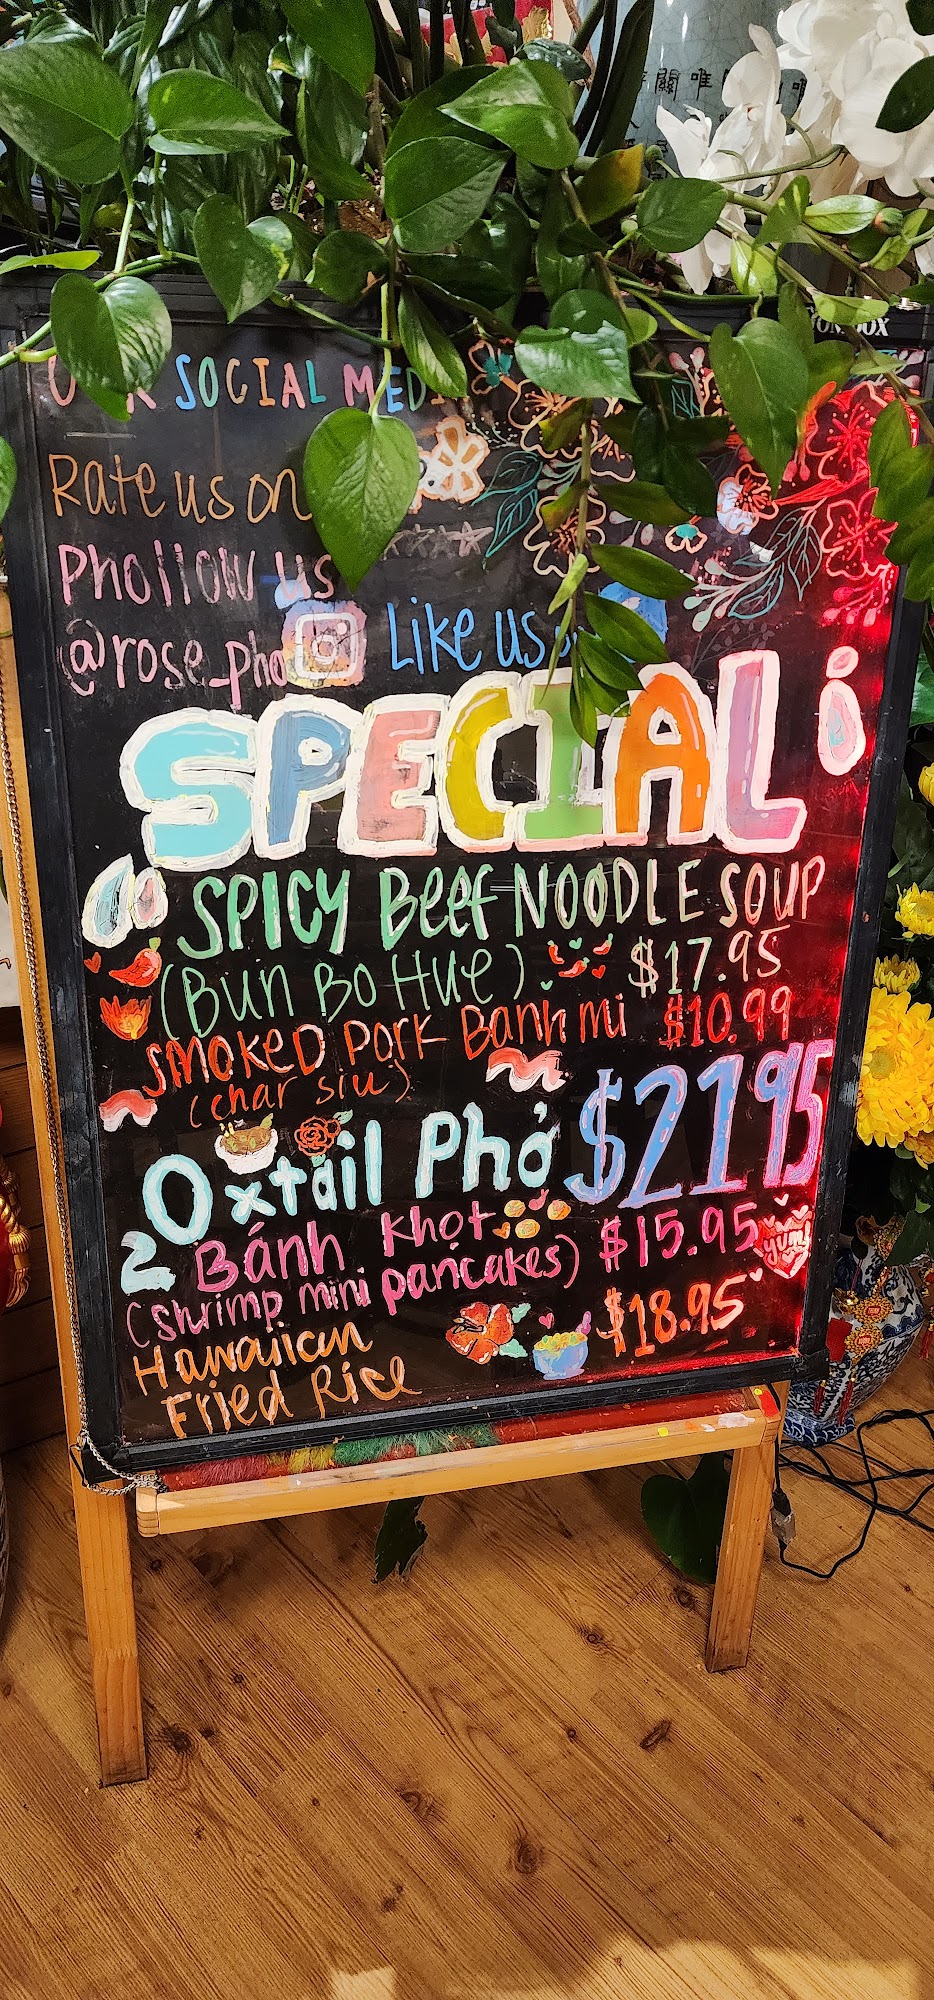 關 唯
SOCIAL MEDI
Rate us on
Phollow us
@rose_pho
Like us
SPECIAL
SPICY Beef NOODLE SOUP
(Bun Bo Hue) $17.95
Smoked Pork Banh mi $10.99
(char siu)
Oxtail Phở $21.95
Bánh Khọt $15.95 yum
(shrimp mini pancakes)
Hawaiian $18.95
Fried Rice